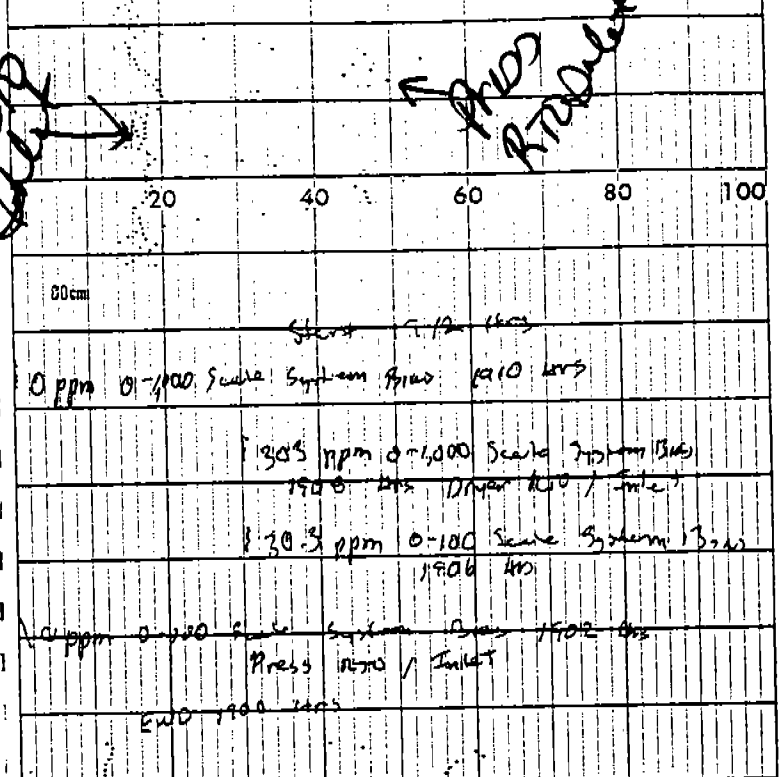 Press
RTO Outlet
20 40 60 80 100
00cm
Start 1912 Hrs
0 ppm 0-1,000 Scale System Bias 1910 Hrs
303 ppm 0-1,000 Scale System Bias
1908 Hrs Dryer RTO / Inlet
30.3 ppm 0-100 Scale System Bias
1906 Hrs
0 ppm 0-100 Scale System Bias 1902 Hrs
Press RTO / Inlet
END 1900 Hrs